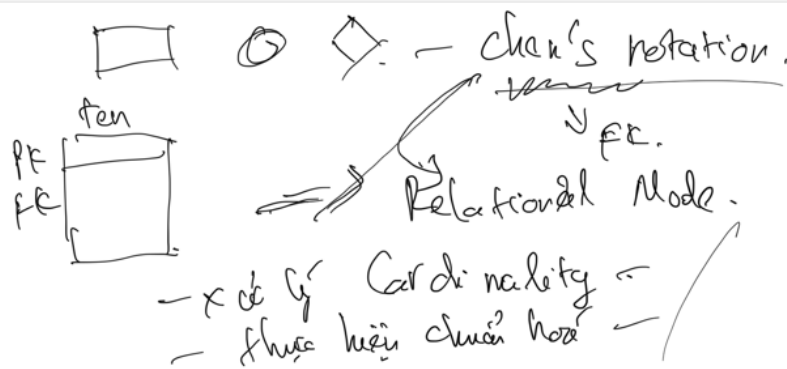 - Chen's notation.
ten
PK
FK
FK.
Relational Mode.
- xử lý Cardinality -
- thực hiện chuẩn hoá -